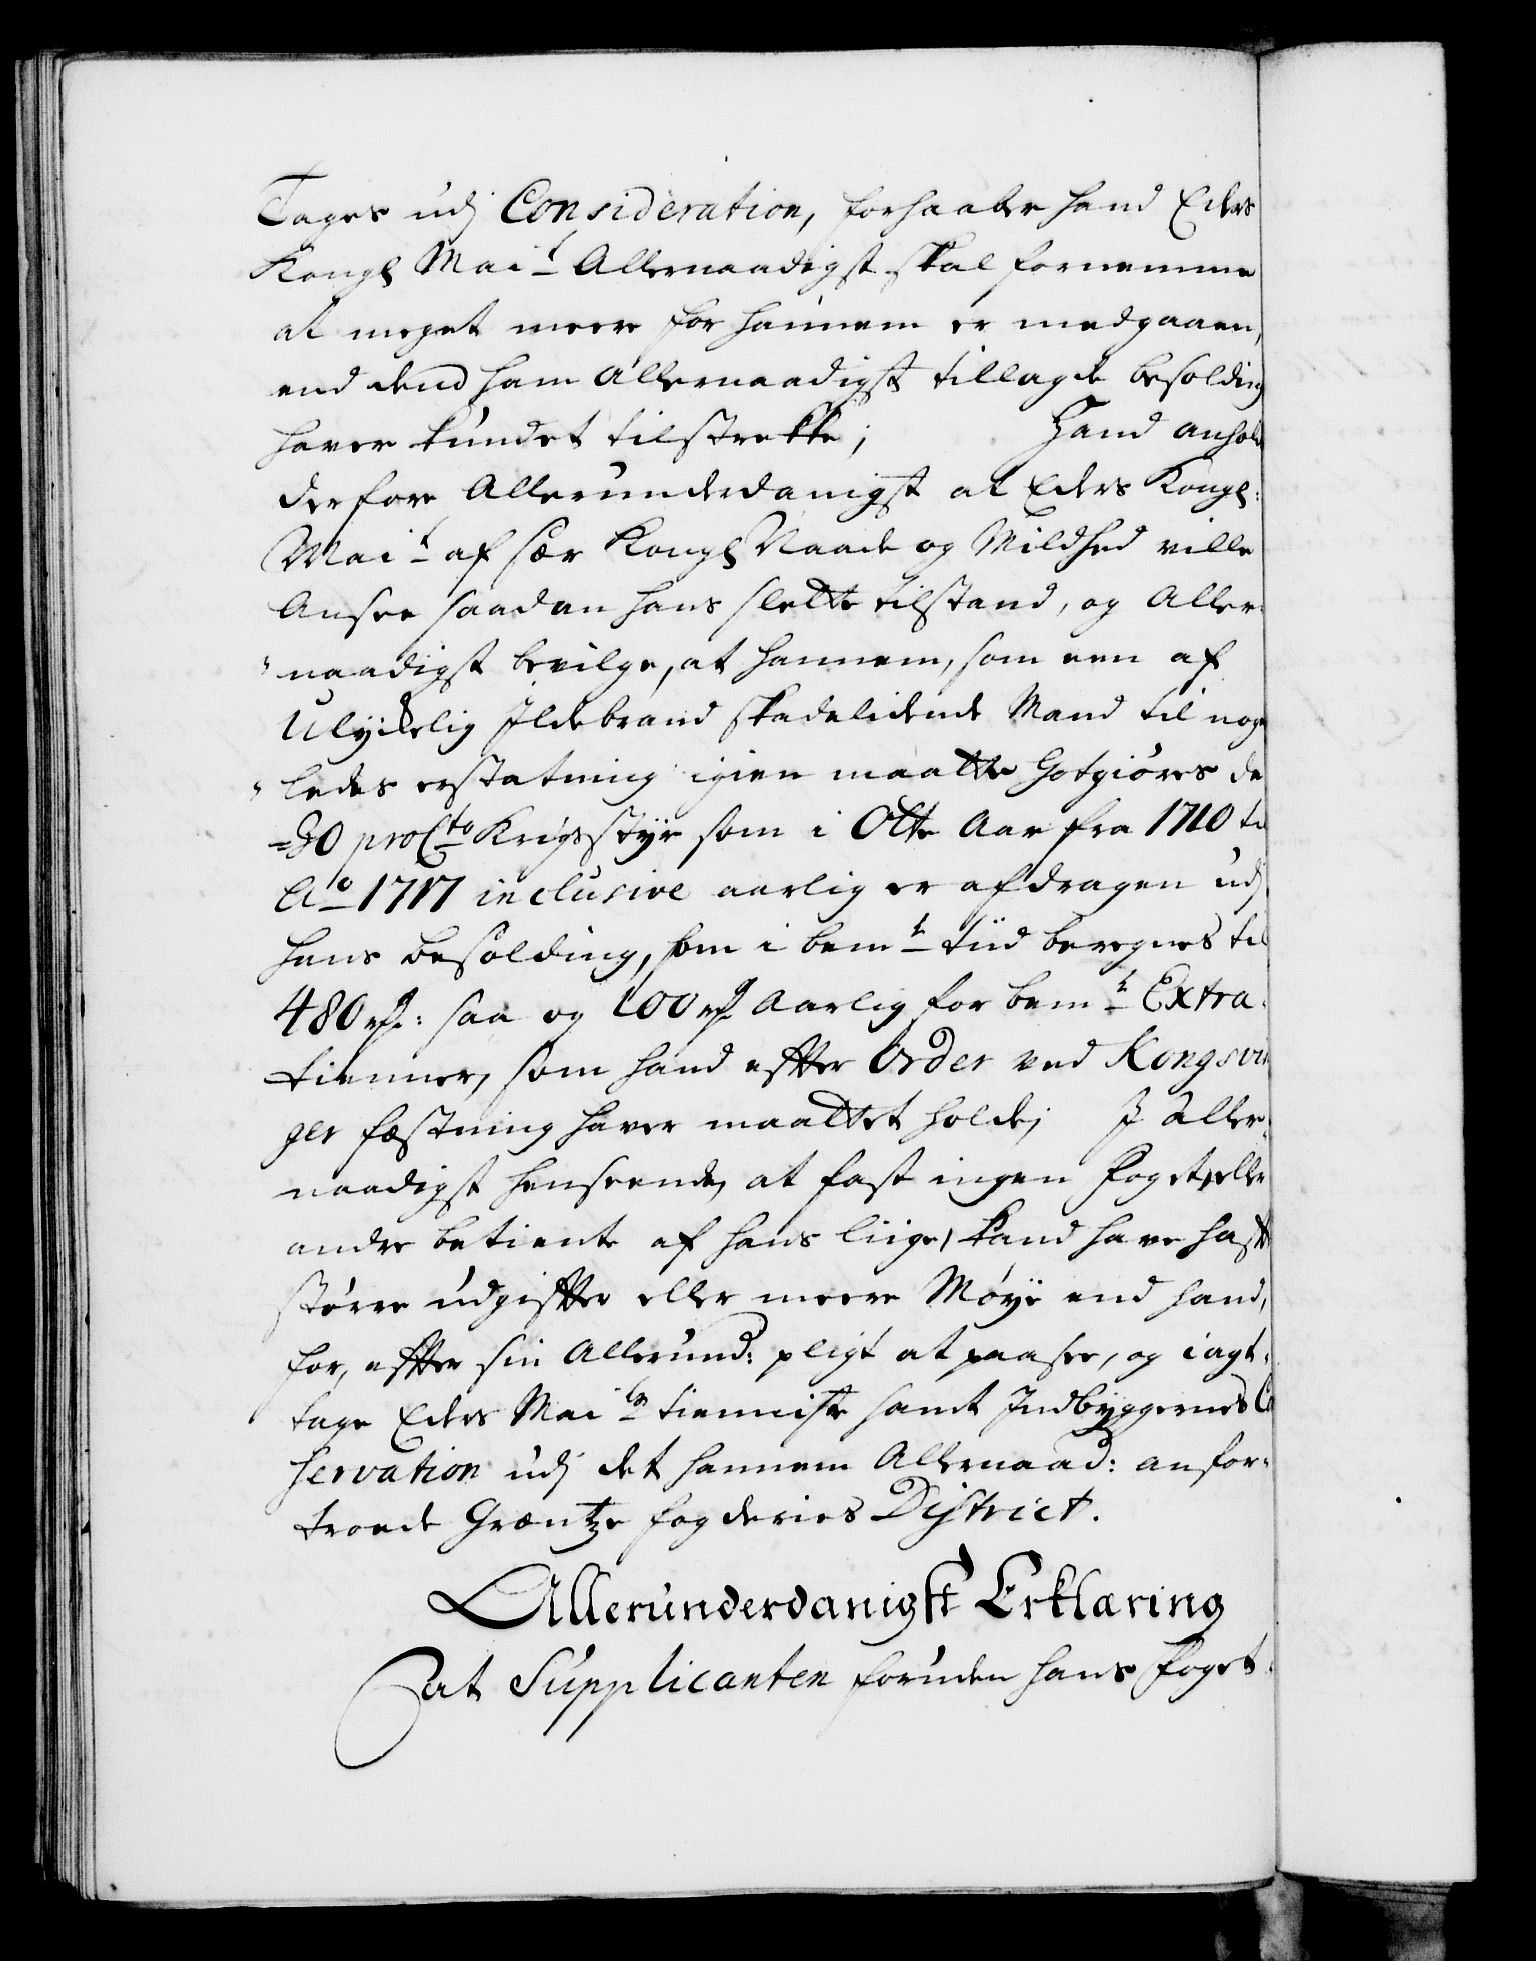 Tages udj Consideration, forhaaber hand Eders
Kongl Mait Allernaadigst skal fornemme
at meget meere for hannem er medgaaen,
end dend ham allernaadigst tillagde besolding
haver kundet tilstrekke; Hand anhold
derfore Allerunderdanigst at Eders Kongl:
Mait af sær Kongl Naade og Mildhed ville
Ansee saadan hans slette tilstand, og Aller-
naadigst bevilge, at hannem, som een af
Ulyckelig Ildebrand skadelidende Mand til noge
ledes erstatning igien maatte Gotgiöres de
30 proCto Krigsstyr som i Otte Aar fra 1710 til
Ao 1717 inclusive aarlig er afdragen udj
hans besolding, som i bemt tiid beregnes til
480 rd: saa og 100 rd Aarlig for bemt Extra-
tienner, som hand effter Order ved Kongsvin
ger fæstning haver maattet holde; I aller-
naadigst henseende, at fast ingen foget, eller
andre betiente af hans liige, kand have hafft
större udgiffter eller meere Møye end hand,
for, effter sin Allerund: pligt at paasee, og iagt-
tage Eders Maits tienniste samt Indbyggernes Con
servation udj det hannem Allernaad: anfor-
troede Græntze fogderies District.
Allerunderdanigst Erklæring
at Supplicanten foruden hans foget-